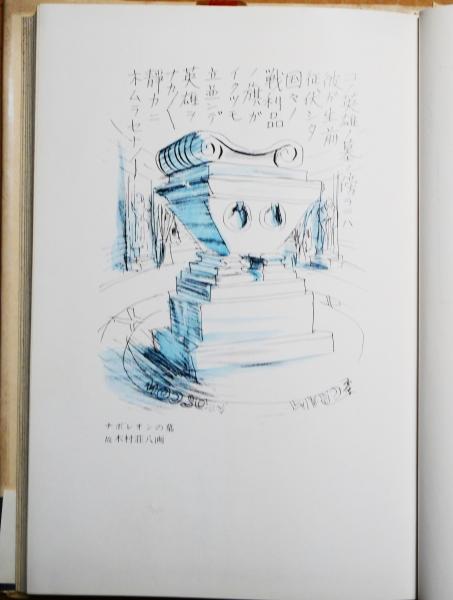 コノ英雄ノ墓ノ傍ニハ
彼が生前
征伏シタ
国々ノ
戦利品
ノ旗が
イクツモ
立並ンデ
英雄ヲ
ナカ〳〵
静カニ
ネムラセナイ
ナポレオンの墓
故 木村荘八画